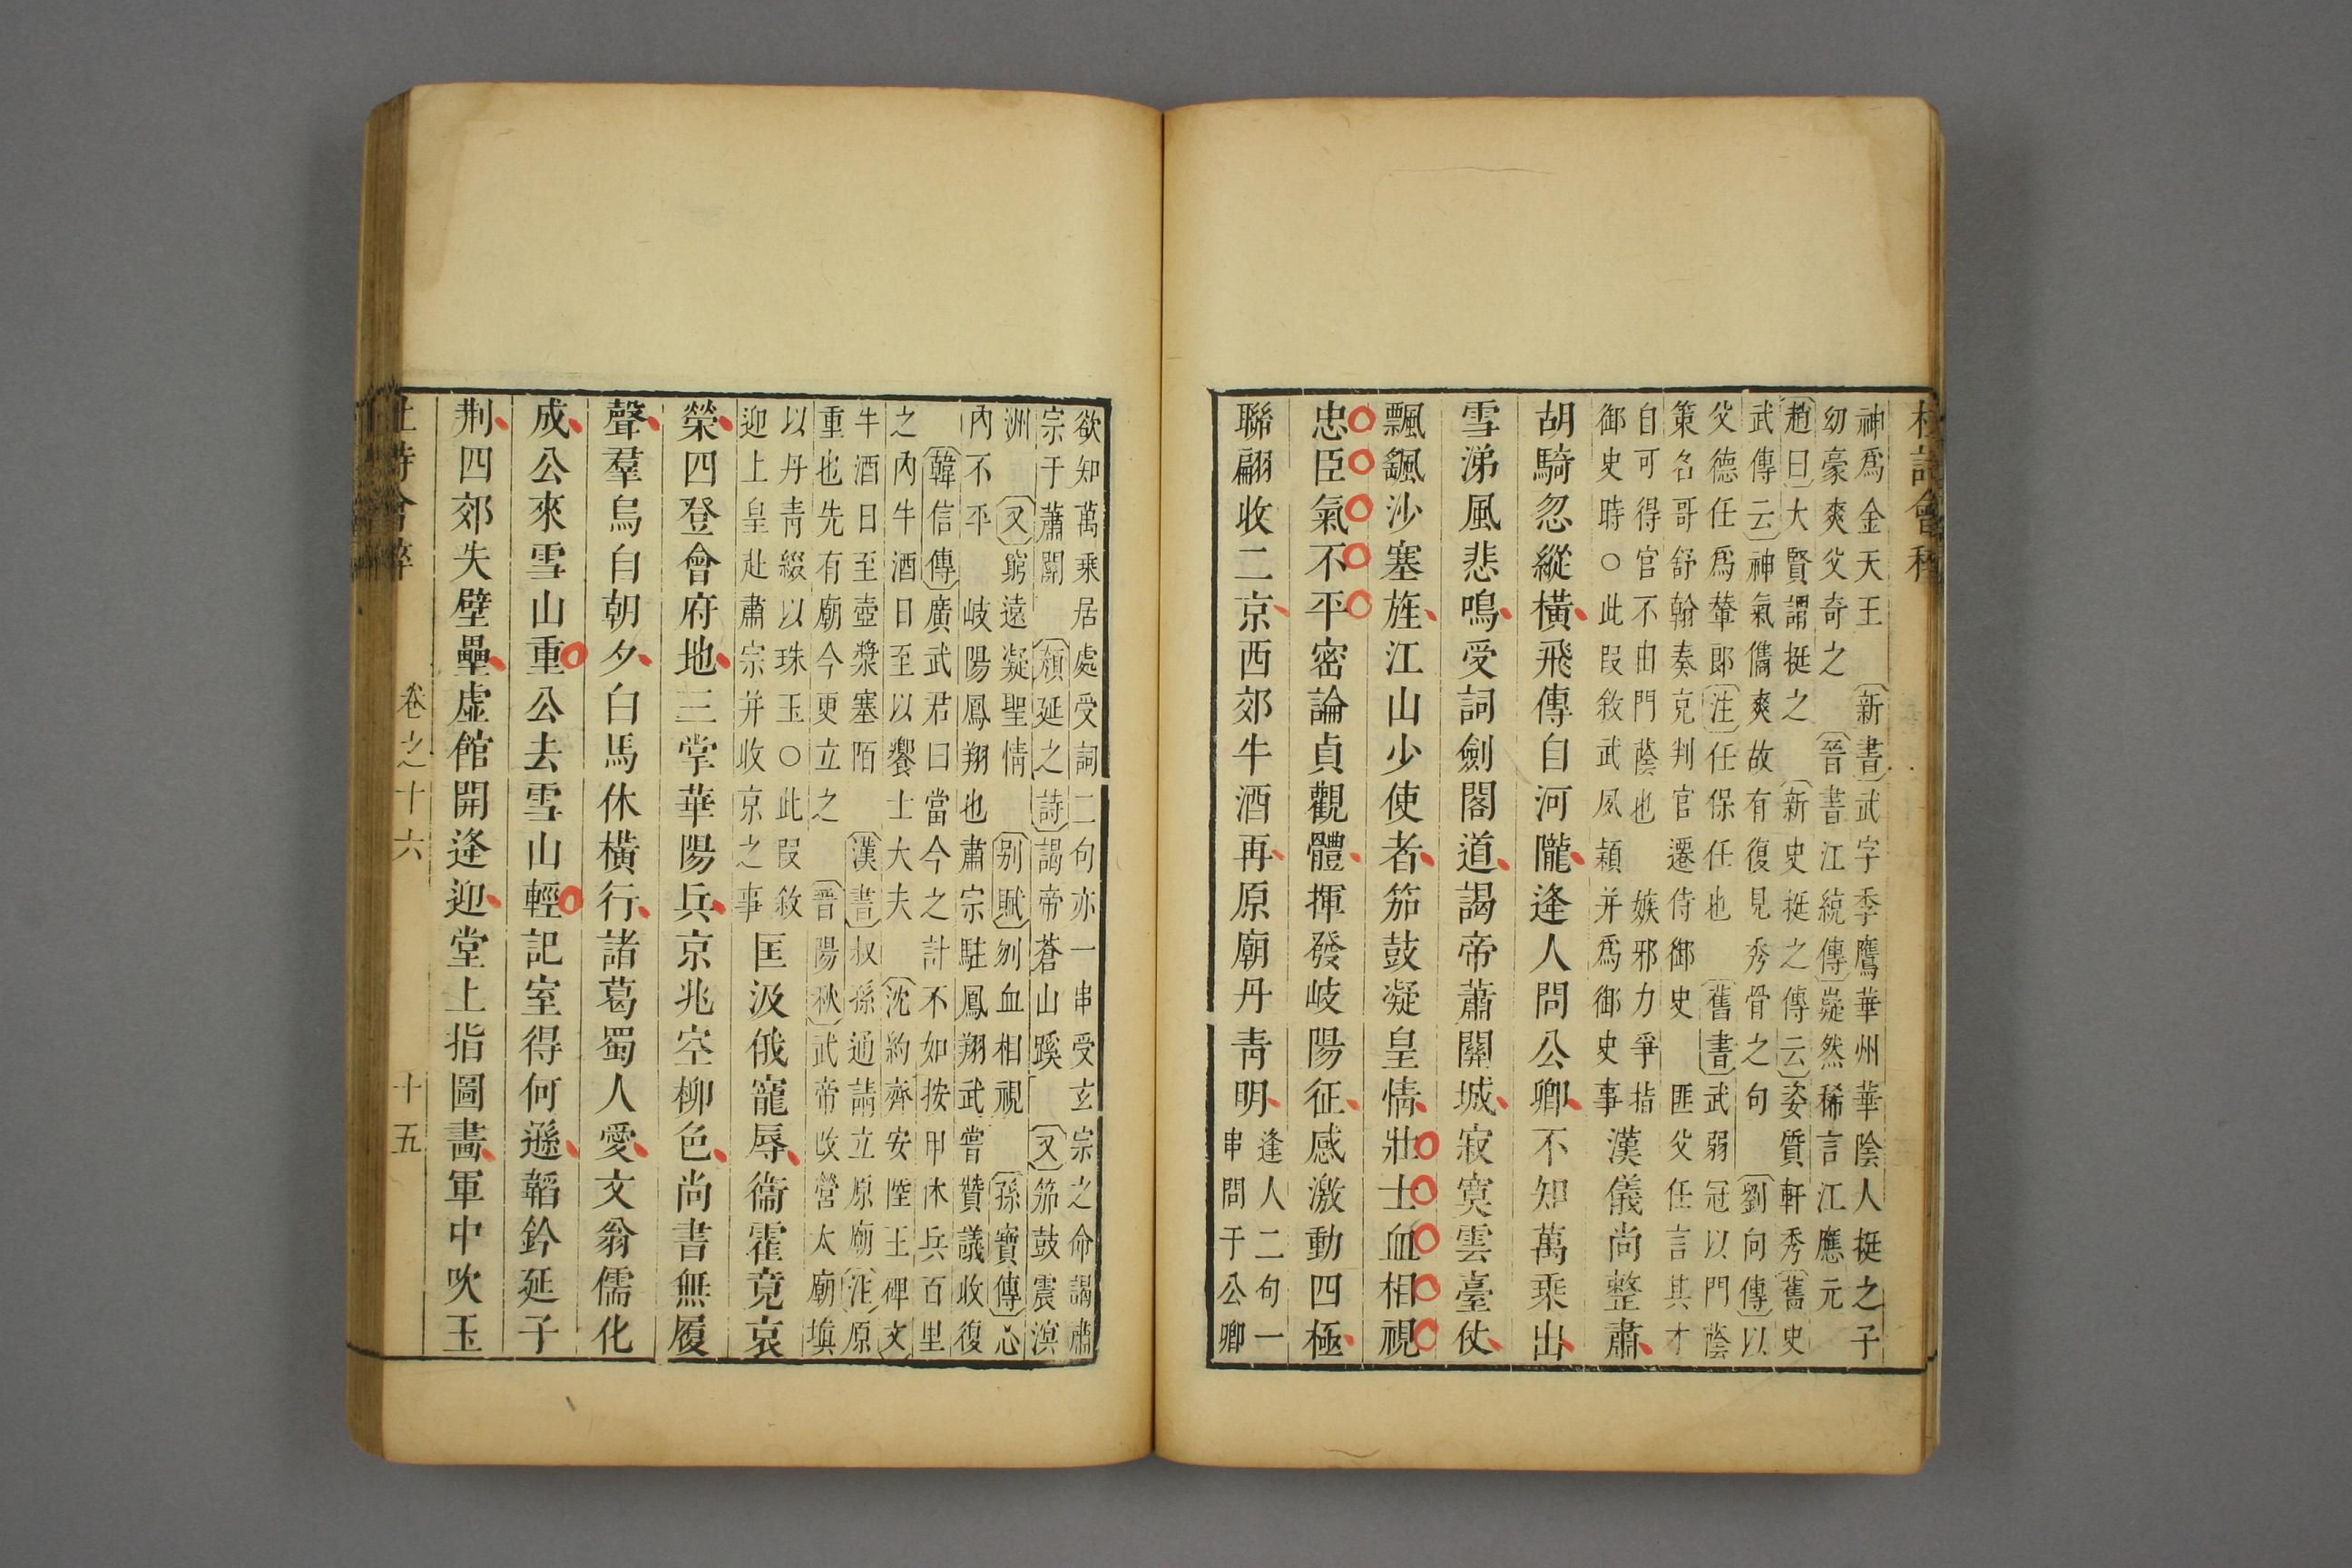 杜詩會稡
神爲金天王 新書武字季鷹華州華陰人挺之子
幼豪爽父奇之 晉書江統傳嶷然稀言江應元
趙曰大賢謂挺之 新史挺之傳云姿質軒秀舊史
武傳云神氣儁爽故有復見秀骨之句 劉向傳以
父德任爲輦郎注任保任也 舊書武弱冠以門蔭
策名哥舒翰奏克判官遷侍御史 匪父任言其才
自可得官不由門蔭也 嫉邪力爭指
御史時○此叚敘武夙穎并爲御史事
漢儀尚整肅
胡騎忽縱橫飛傳自河隴逢人問公卿不知萬乗出
雪涕風悲鳴受詞劍閣道謁帝蕭關城寂寞雲臺仗
飄颻沙塞旌江山少使者笳鼓凝皇情壯士血相視
忠臣氣不平密論貞觀體揮發岐陽征感激動四極
聯翩收二京西郊牛酒再原廟丹青明
逢人二句一
串問于公卿
欲知萬乗居處受詞二句亦一串受玄宗之命謁肅
宗于蕭關 顔延之詩謁帝蒼山蹊 又笳鼓震溟
洲 又窮遠凝聖情 别賦刎血相視 孫寶傳心
內不平 岐陽鳳翔也肅宗駐鳳翔武嘗贊議收復
韓信傳廣武君曰當今之計不如按甲休兵百里
之內牛酒日至以饗士大夫 沈約齊安陸王碑文
牛酒日至壺漿塞陌 漢書叔孫通請立原廟注原
重也先有廟今更立之 晉陽秋武帝改營太廟塡
以丹青綴以珠玉○此叚敘
迎上皇赴肅宗并收京之事
匡汲俄寵辱衞霍竟哀
榮四登會府地三掌華陽兵京兆空柳色尚書無履
聲羣烏自朝夕白馬休橫行諸葛蜀人愛文翁儒化
成公來雪山重公去雪山輕記室得何遜韜鈐延子
荆四郊失壁壘虛館開逢迎堂上指圖畵軍中吹玉
杜詩會稡 卷之十六 十五